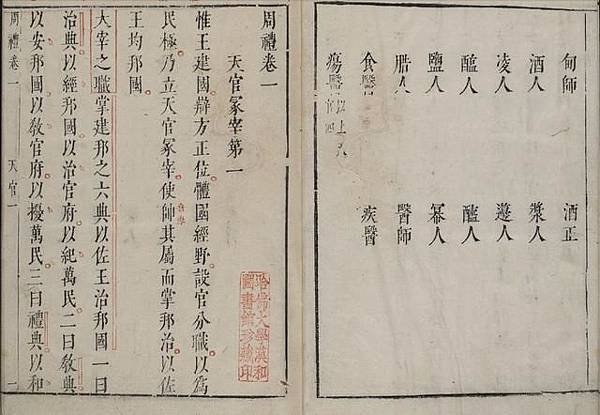 甸師 酒正
酒人 漿人
凌人 籩人
醢人 醯人
鹽人 冪人
腊人 醫師
食醫 疾醫
瘍醫
周禮卷一
天官冢宰第一
惟王建國辯方正位體國經野設官分職以爲
民極乃立天官冢宰使帥其屬而掌邦治以佐
王均邦國
大宰之職掌建邦之六典以佐王治邦國一曰
治典以經邦國以治官府以紀萬民二曰敎典
以安邦國以敎官府以擾萬民三曰禮典以和
周禮卷一 天官一 一
哈佛大學漢和
圖書館珍藏印